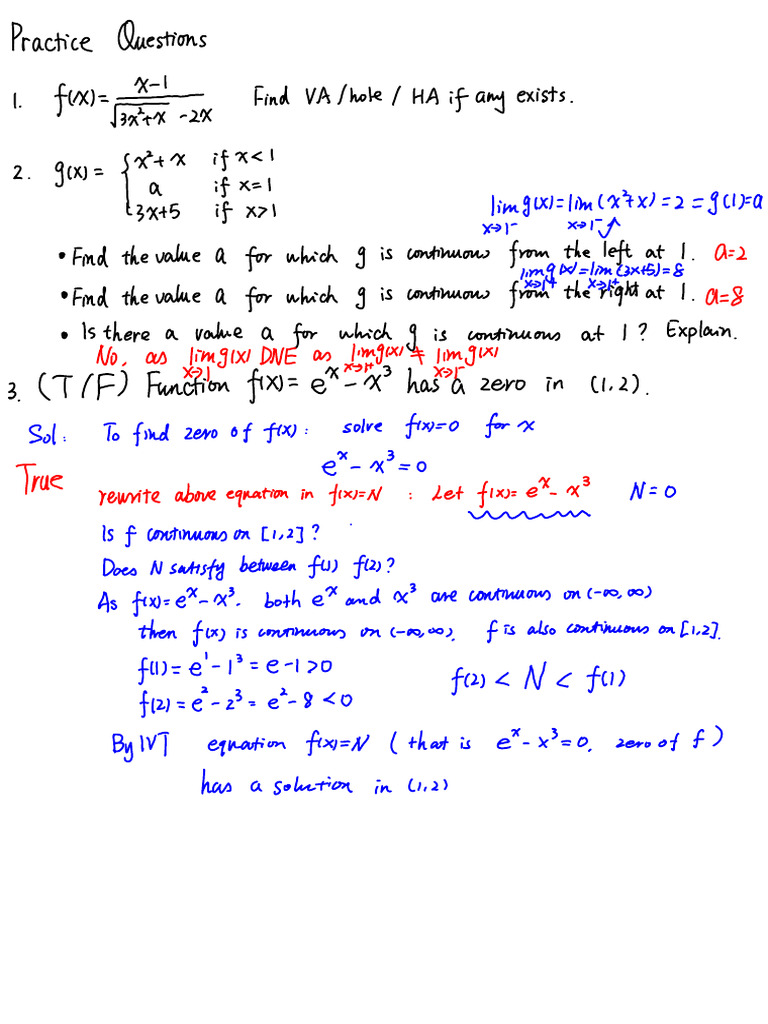 Practice Questions
1. f(x) = (x-1)/(√(3x²+x) - 2x) Find VA/hole/HA if any exists.
2. g(x) = { x²+x if x<1
a if x=1
3x+5 if x>1
lim x→1⁻ g(x) = lim x→1⁻ (x²+x) = 2 = g(1) = a
• Find the value a for which g is continuous from the left at 1. a=2
lim x→1⁺ g(x) = lim x→1⁺ (3x+5) = 8
• Find the value a for which g is continuous from the right at 1. a=8
• Is there a value a for which g is continuous at 1? Explain.
No, as lim x→1 g(x) DNE as lim x→1⁺ g(x) ≠ lim x→1⁻ g(x)
3. (T/F) Function f(x) = eˣ - x³ has a zero in (1,2).
Sol: To find zero of f(x): solve f(x)=0 for x
eˣ - x³ = 0
True
rewrite above equation in f(x)=N : Let f(x) = eˣ - x³ N=0
Is f continuous on [1,2]?
Does N satisfy between f(1) f(2)?
As f(x) = eˣ - x³. both eˣ and x³ are continuous on (-∞,∞)
then f(x) is continuous on (-∞,∞). f is also continuous on [1,2].
f(1) = e¹ - 1³ = e-1 > 0
f(2) = e² - 2³ = e² - 8 < 0
f(2) < N < f(1)
By IVT equation f(x)=N (that is eˣ - x³ = 0. zero of f)
has a solution in (1,2)